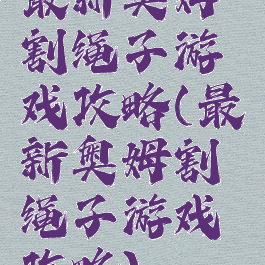 最新奥姆
割绳子游
戏攻略(最
新奥姆割
绳子游戏
攻略)